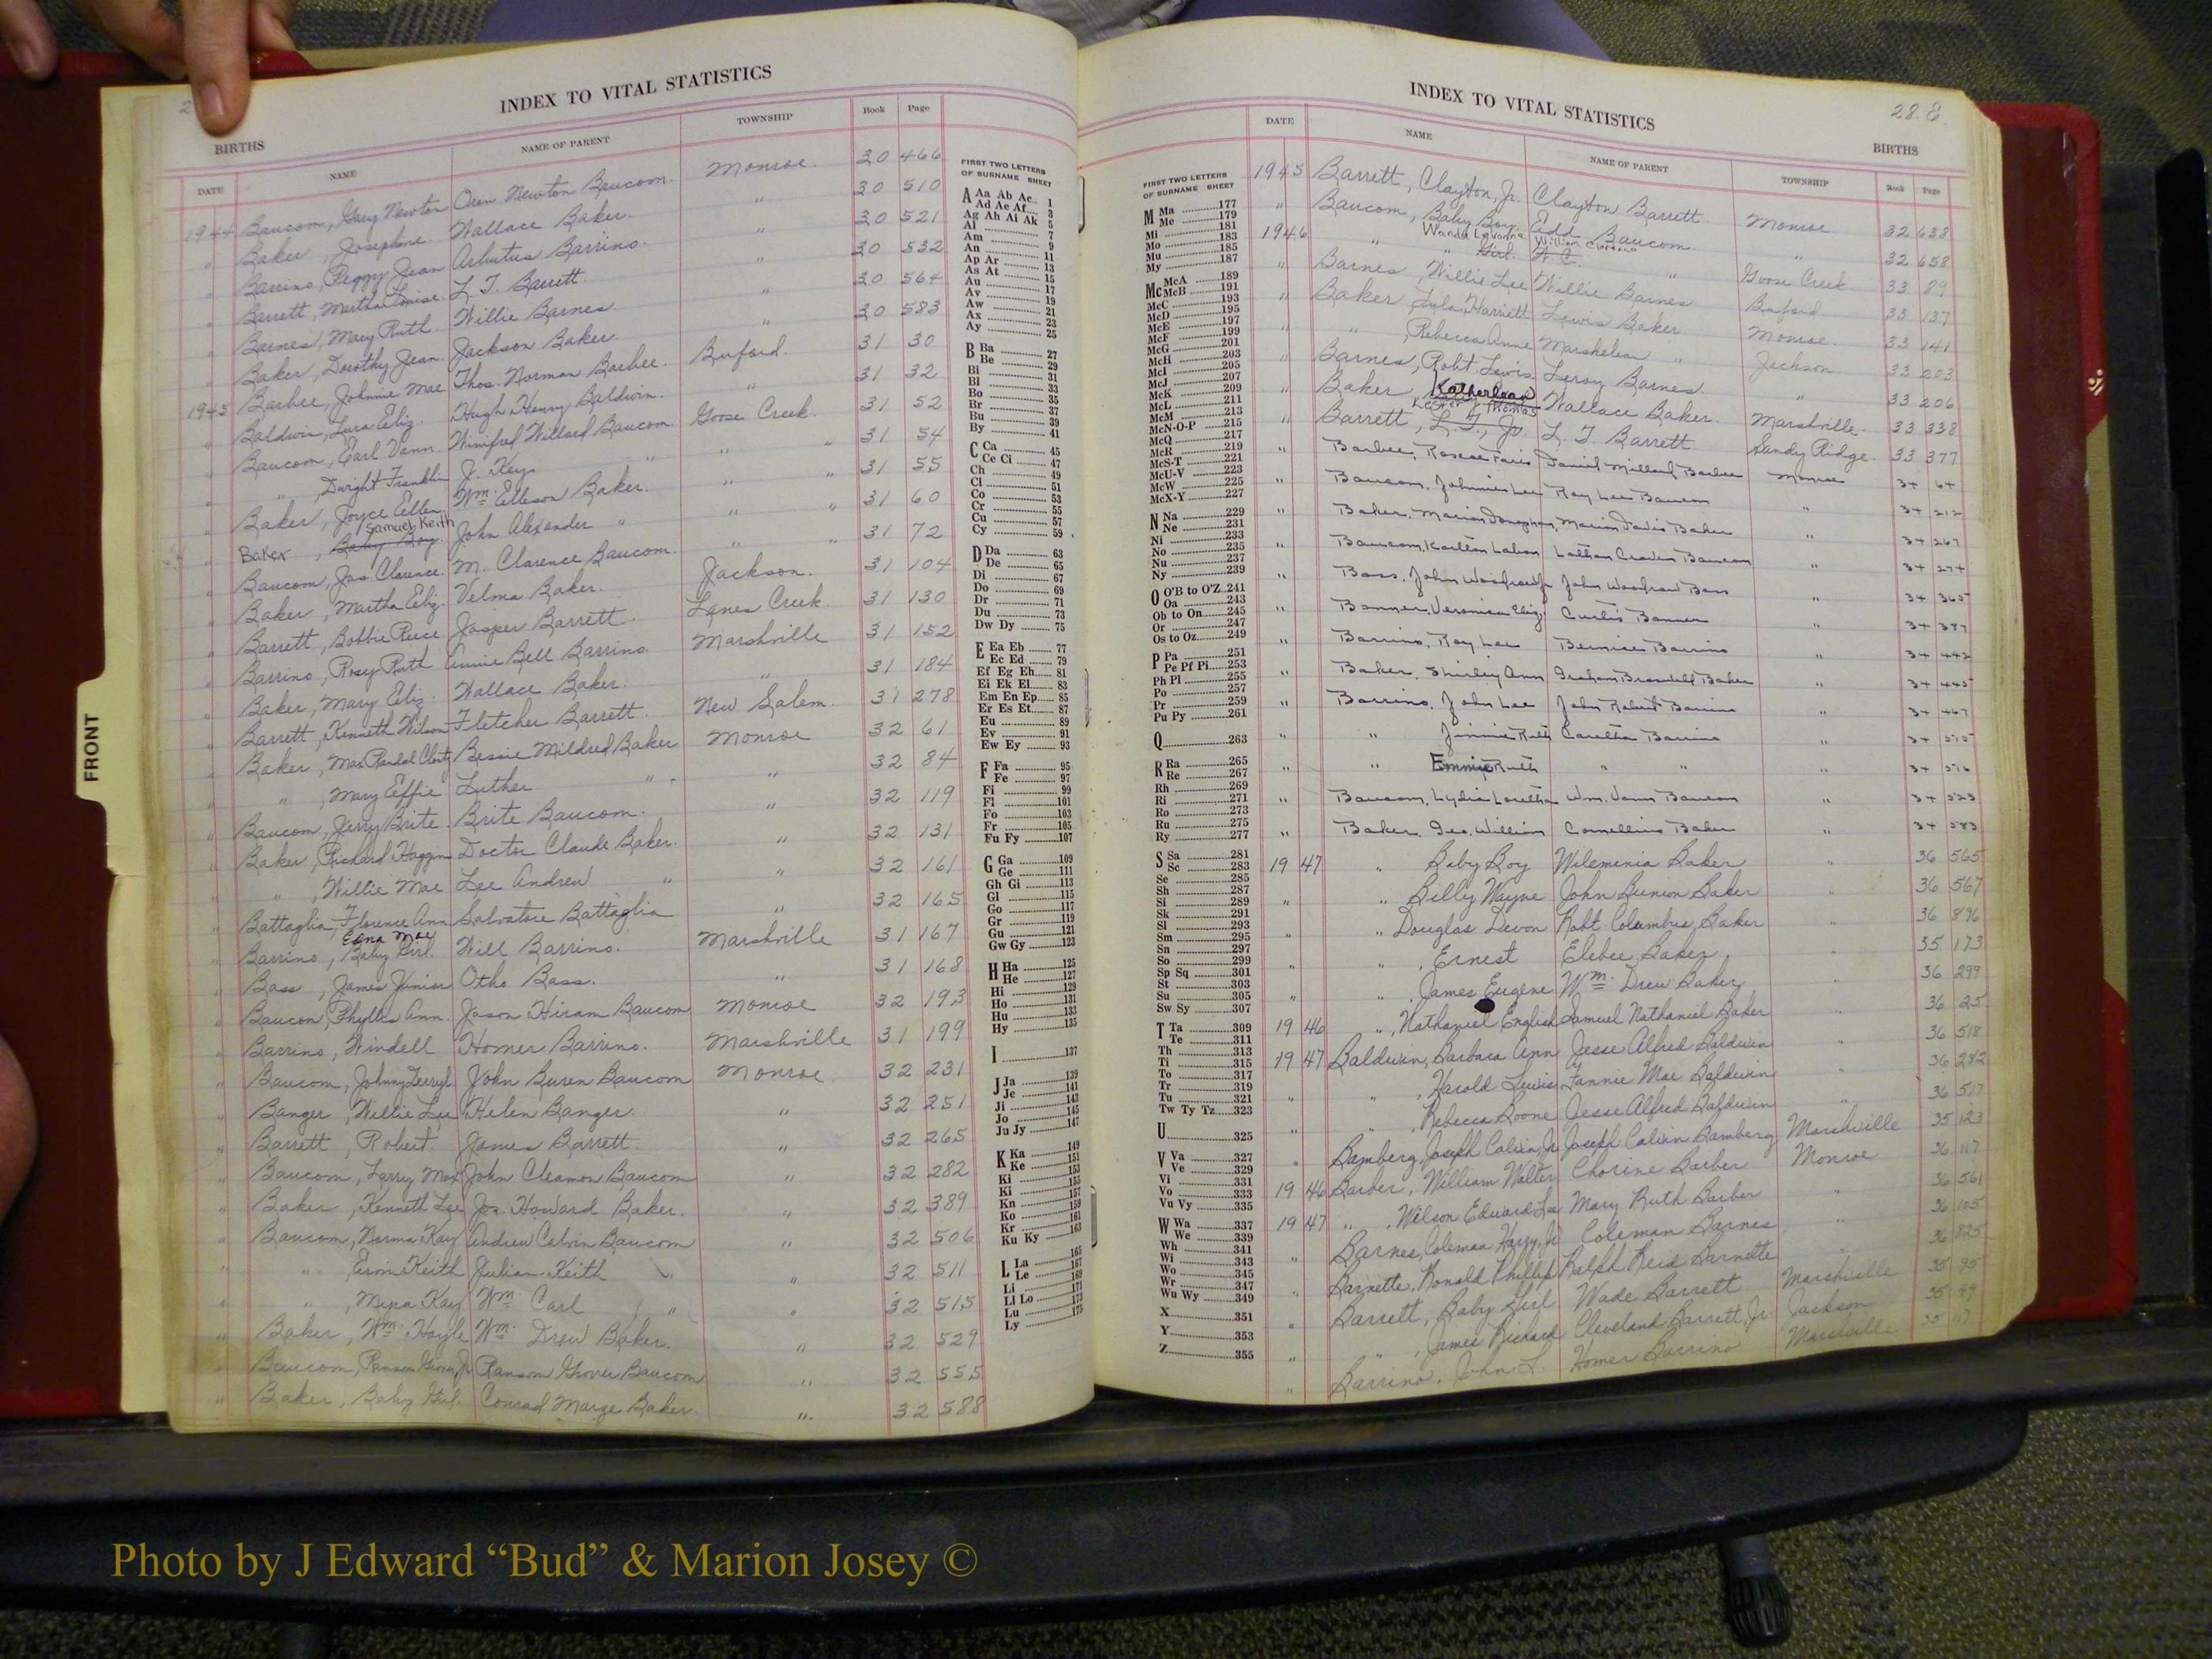 INDEX TO VITAL STATISTICS
BIRTHS
DATE NAME NAME OF PARENT TOWNSHIP Book Page
1944 Baucom, Gary Newton Oren Newton Baucom Monroe. 30 466
" Baker, Josephine. Wallace Baker. " 30 510
" Barrino, Peggy Jean Arbutus Barrino. " 30 521
" Barrett, Martha Louise. L. T. Barrett " 30 532
" Barnes, Mary Ruth Willie Barnes " 30 564
" Baker, Dorothy Jean. Jackson Baker. " 30 583
1945 Barbee, Johnnie Mae Thos. Norman Barbee. Buford. 31 30
" Baldwin, Lura Eliz. Hugh Henry Baldwin. " 31 32
" Baucom, Earl Vann. Winifred Willard Baucom Goose Creek. 31 52
" " , Dwight Franklin J. Key " " " 31 54
" Baker, Joyce Ellen Wm. Ellison Baker. " " 31 55
Samuel Keith
" Baker, Baby Boy John Alexander " " " 31 60
" Baucom, Jas. Clarence. M. Clarence Baucom. " " 31 72
" Baker, Martha Eliz. Velma Baker. Jackson. 31 104
" Barrett, Bobbie Reece Jasper Barrett. Lanes Creek. 31 130
" Barrino, Rosy Ruth Annie Bell Barrino. Marshville 31 152
" Baker, Mary Eliz. Wallace Baker. " 31 184
" Barrett, Kenneth Wilson Fletcher Barrett. New Salem. 31 278
" Baker, Max Randal Bessie Mildred Baker Monroe 32 61
" " , Mary Effie Luther " " 32 84
" Baucom, Jerry Brite Brite Baucom. " 32 119
" Baker, Richard Doctor Claude Baker. " 32 131
" " , Willie Mae Lee Andrew " " 32 161
" Battaglia, Florence Ann Salvatore Battaglia " 32 165
Edna Mae
" Barrino, Baby Girl. Will Barrino. Marshville 31 167
" Bass, James Junior Otho Bass. " 31 168
" Baucom, Phyllis Ann. Jason Hiram Baucom Monroe 32 193
" Barrino, Windell Homer Barrino. Marshville 31 199
" Baucom, Johnny Terryl John Buren Baucom Monroe 32 231
" Banger, Willie Lee Helen Banger. " 32 251
" Barrett, Robert. James Barrett. " 32 265
" Baucom, Larry Max John Cleamon Baucom " 32 282
" Baker, Kenneth Lee Jos. Howard Baker. " 32 389
" Baucom, Norma Kay Andrew Calvin Baucom " 32 506
" " , Keith Julian Keith " " 32 511
" " , Kay Wm. Carl " " 32 515
" Baker, Wm. Hoyle Wm. Drew Baker. " 32 529
" Baucom, Ransom Grover, Jr. Ransom Grover Baucom " 32 555
" Baker, Baby Girl. Conrad Marze Baker. " 32 588
FIRST TWO LETTERS
OF SURNAME SHEET
A Aa Ab Ac 1
Ad Ae Af 3
Ag Ah Ai Ak 5
Al 7
Am 9
An 11
Ap Ar 13
As At 15
Au 17
Av 19
Aw 21
Ax 23
Ay 25
B Ba 27
Be 29
Bi 31
Bl 33
Bo 35
Br 37
Bu 39
By 41
C Ca 45
Ce Ci 47
Ch 49
Cl 51
Co 53
Cr 55
Cu 57
Cy 59
D Da 63
De 65
Di 67
Do 69
Dr 71
Du 73
Dw Dy 75
E Ea Eb 77
Ec Ed 79
Ef Eg Eh 81
Ei Ek El 83
Em En Ep 85
Er Es Et 87
Eu 89
Ev 91
Ew Ey 93
F Fa 95
Fe 97
Fi 99
Fl 101
Fo 103
Fr 105
Fu Fy 107
G Ga 109
Ge 111
Gh Gi 113
Gl 115
Go 117
Gr 119
Gu 121
Gw Gy 123
H Ha 125
He 127
Hi 129
Ho 131
Hu 133
Hy 135
I 137
J Ja 139
Je 141
Ji 143
Jo 145
Ju Jy 147
K Ka 149
Ke 151
Ki 153
Ki 155
Kn 157
Ko 159
Kr 161
Ku Ky 163
L La 165
Le 167
Li 169
Ll Lo 171
Lu 173
Ly 175
FRONT
INDEX TO VITAL STATISTICS
28. E.
BIRTHS
FIRST TWO LETTERS
OF SURNAME SHEET
M Ma 177
Me 179
Mi 181
Mo 183
Mu 185
My 187
Mc McA 189
McB 191
McC 193
McD 195
McE 197
McF 199
McG 201
McH 203
McI 205
McJ 207
McK 209
McL 211
McM 213
McN-O-P 215
McQ 217
McR 219
McS-T 221
McU-V 223
McW 225
McX-Y 227
N Na 229
Ne 231
Ni 233
No 235
Nu 237
Ny 239
O O'B to O'Z 241
Oa 243
Ob to On 245
Or 247
Os to Oz 249
P Pa 251
Pe Pf Pi 253
Ph Pl 255
Po 257
Pr 259
Pu Py 261
Q 263
R Ra 265
Re 267
Rh 269
Ri 271
Ro 273
Ru 275
Ry 277
S Sa 281
Sc 283
Se 285
Sh 287
Si 289
Sk 291
Sl 293
Sm 295
Sn 297
So 299
Sp Sq 301
St 303
Su 305
Sw Sy 307
T Ta 309
Te 311
Th 313
Ti 315
To 317
Tr 319
Tu 321
Tw Ty Tz 323
U 325
V Va 327
Ve 329
Vi 331
Vo 333
Vu Vy 335
W Wa 337
We 339
Wh 341
Wi 343
Wo 345
Wr 347
Wu Wy 349
X 351
Y 353
Z 355
DATE NAME NAME OF PARENT TOWNSHIP Book Page
1945 Barrett, Clayton, Jr. Clayton Barrett Monroe 32 638
" Baucom, Baby Boy Edd Baucom " 32 658
Wanda Lavanna William Clarence
1946 " " Girl. W. C. " Goose Creek 33 29
" Barnes, Willie Lee Willie Barnes Buford 33 137
" Baker, Lula Harriett Lewis Baker Monroe 33 141
" " , Rebecca Anne " Jackson 33 203
" Barnes, Robt. Lewis. Leroy Barnes. " 33 206
" Baker, Wallace Baker. Marshville. 33 338
Lester Thomas
" Barrett, L. T., Jr. L. T. Barrett Sandy Ridge. 33 377
" Barbee, Roscoe Faris Daniel Millard Barbee Monroe 34 64
" Baucom, Johnnie Lee Ray Lee Baucom " 34 212
" Baker, Marion Marion Davis Baker " 34 267
" Baucom, Karlton Labon Lathan Craven Baucom " 34 274
" Bass, John Woodrow Jr John Woodrow Bass " 34 365
" Banner, Veronica Eliz. Curtis Banner " 34 387
" Barrino, Ray Lee Bernice Barrino " 34 442
" Baker, Shirley Ann Graham Baker " 34 445
" Barrino, John Lee John Robert Barrino " 34 467
" " Jimmie Ruth Caretha Barrino " 34 515
" " Emmie Ruth " " " 34 516
" Baucom, Lydia Loretha Wm. Vann Baucom " 34 523
" Baker, Geo. William Cornellius Baker " 34 583
1947 " Baby Boy Wilemenia Baker " 36 565
" " Billy Wayne John Bunion Baker " 36 567
" " Douglas Devon Robt Columbus Baker " 36 896
" " , Ernest Elebee Baker 35 173
" " , James Eugene Wm. Drew Baker " 36 299
1946 " , Nathaniel English Samuel Nathaniel Baker " 36 25
1947 Baldwin, Barbara Ann Jesse Alfred Baldwin 36 518
" " , Harold Lewis Fannie Mae Baldwin 36 282
" " , Rebecca Boone Jesse Alfred Baldwin " 36 517
" Bamberg, Joseph Calvin, Jr Joseph Calvin Bamberg Marshville 35 123
1946 Barber, William Walter Chorine Barber Monroe 36 117
1947 " , Wilson Edward Lee Mary Ruth Barber " 36 561
" Barnes, Coleman Harry, Jr Coleman Barnes " 36 105
" Barnette, Ronald Phillip Ralph Reid Barnette 36 825
" Barrett, Baby Girl Wade Barrett Marshville 35 95
" " , James Richard Cleveland Barrett, Jr Jackson 35
" Barrino, John L. Homer Barrino Marshville 35
Photo by J Edward “Bud” & Marion Josey ©